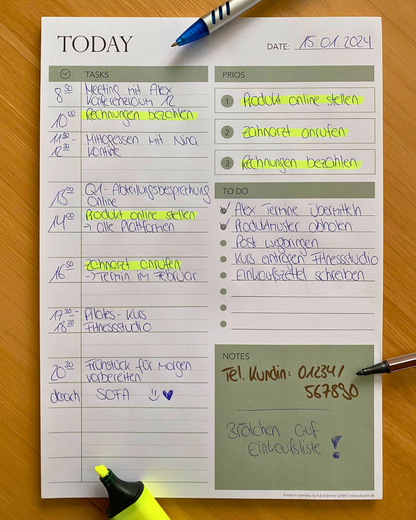 TODAY
DATE: 15.01.2024
TASKS
8 30 Meeting mit Alex
Konferenzraum 12
10 00 Rechnungen bezahlen
Mittagessen mit Nina
Kantine
13 00 Q1-Abteilungsbesprechung
Online
14 00 Produkt online stellen
→ alle Plattformen
16 30 Zahnarzt anrufen
→ Termin im Februar
17 30 - Pilates-Kurs
18 30 Fitnessstudio
20 30 Frühstück für morgen
vorbereiten
danach SOFA
PRIOS
1 Produkt online stellen
2 Zahnarzt anrufen
3 Rechnungen bezahlen
TO DO
Alex Termine übermitteln
Produktmuster abholen
Post wegbringen
Kurs eintragen Fitnessstudio
Einkaufszettel schreiben
NOTES
Tel. Kundin: 01234/
567890
Brötchen auf
Einkaufsliste!